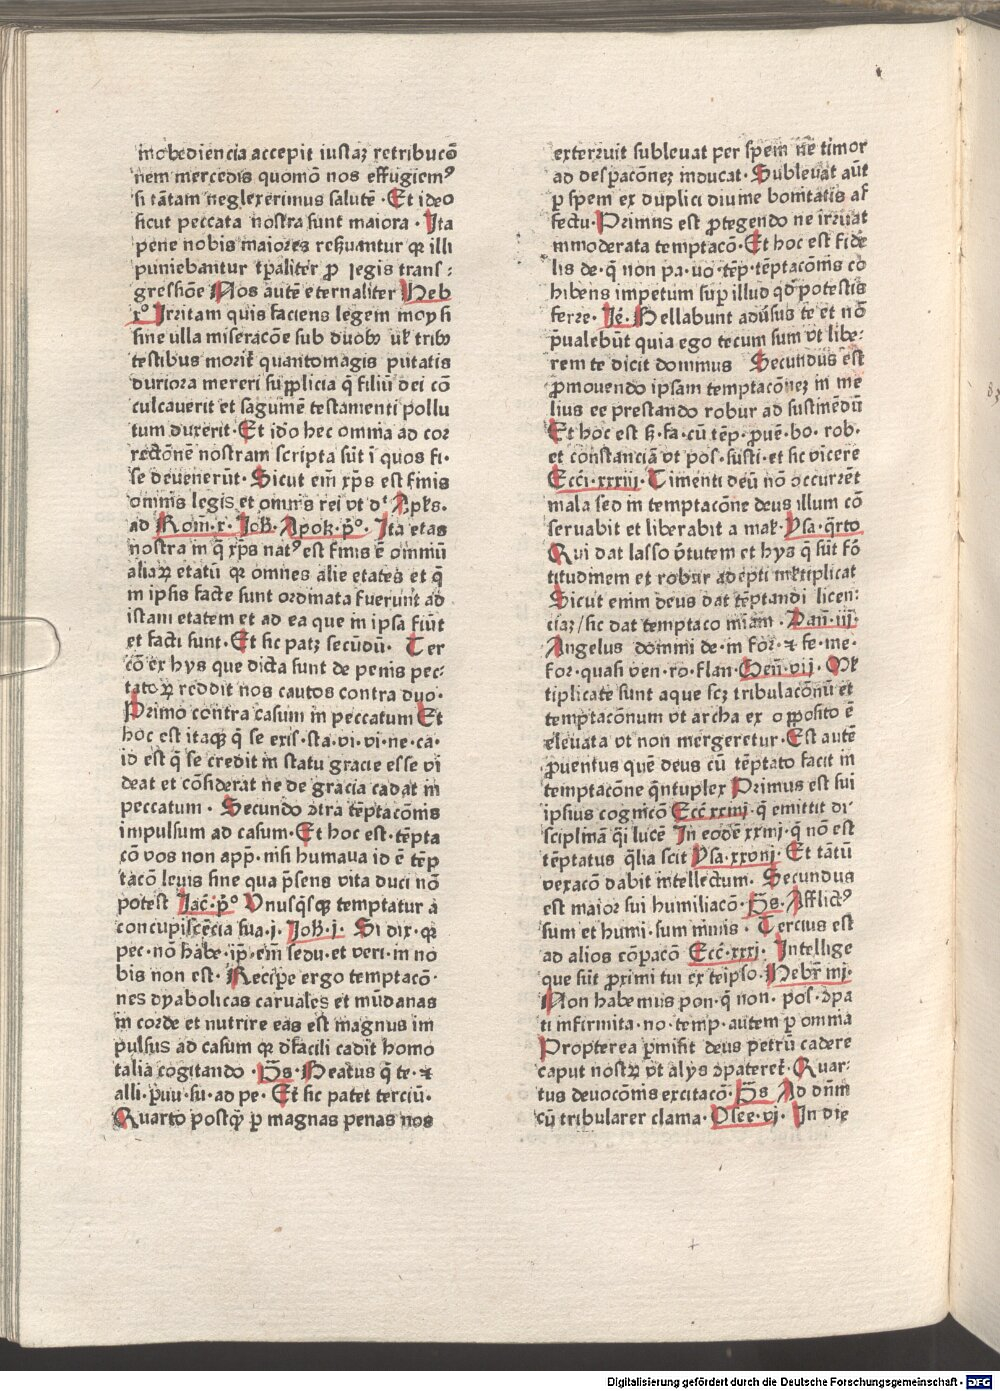 inobediencia accepit iustaꝫ retribucō
nem mercedis quomō nos effugiemꝰ
si tātam neglexerimus salutē · Et ideo
sicut peccata nostra sunt maiora · Ita
pene nobis maiores reẞuantur qꝛ illi
puniebantur tꝑaliter ꝓ legis trans⸗
gressiōe Nos autē eternaliter Heb
xº Irritam quis faciens legem moysi
sine ulla miseracōe sub duobꝫ uł tribꝫ
testibus morit̉ quantomagis putatis
duriora mereri supplicia q̄ filiū dei cō
culcauerit et sāguinē testamenti pollu
tum duxerit · Et idō hec omnia ad cor
rectōnē nostram scripta sūt ī quos fi·
ſe deuenerūt · Sicut em̄ xp̄s est finis
omnis legis et omnis rei vt dt̉ Apłs·
ad Rom̄·x· Joh̄· Apok·p̄º· Ita etas
nostra in q̄ xp̄s natꝰ est finis ē omniū
aliaꝝ etatū qꝛ omnes alie etates et q̄
in ipsis facte sunt ordinata fuerunt ad
istam etatem et ad ea que in ipsa fiūt
et facti sunt · Et sic patꝫ secūdū · Ter
cō ex hys que dicta sunt de penis pec⸗
catoꝝ reddit nos cautos contra duo·
Primo contra casum in peccatum Et
hoc est itaqꝫ q̄ se exis·sta·vi·vi·ne·ca·
id est q̄ se credit in statu gracie esse vi
deat et cōsiderat ne de gracia cadat in
peccatum · Secundo ꝯtra tēptacōnis
impulsum ad casum · Et hoc est · tēpta
cō vos non app·nisi humana id ē tēp
tacō leuis sine qua p̄sens vita duci nō
potest Jac̄·p̄º Vnusq̄sqꝫ temptatur a
concupiscēcia sua·j·Joh̄·j· Si dix·qꝛ
pec·nō habe·ip̄·em̄ sedu·et veri·in no
bis non est · Recipe ergo temptacō·
nes dyabolicas carnales et mūdanas
in corde et nutrire eas est magnus im
pulsus ad casum qꝛ dīfacili cadit homo
talia cogitando · P̄s·Beatus q̄ te·⁊
alli·paru·su·ad pe · Et sic patet terciū·
Quarto postq̄ꝫ ꝑ magnas penas nos
exterruit subleuat per spem ne timor
ad desꝑacōneꝫ inducat · Subleuat aūt
ꝑ spem ex duplici diuine bonitatis af
fectu · Primus est ꝓtegendo ne irruat
inmoderata temptacō · Et hoc est fide
lis de·q̄ non pa·uo·tēp·tēptacōnis co
hibens impetum suꝑ illud qd̄ potestis
ferre · Je͛·Bellabunt adūsus te et nō
p̄ualebūt quia ego tecum sum vt libe⸗
rem te dicit dominus Secundus est
ꝓmouendo ipsam temptacōneꝫ in me
lius ee prestando robur ad sustinēdū
Et hoc est ẞ·fa·cū tēp·ꝓuē·bo·rob·
et constanciā vt pos·susti·et sic vicere
Ecci·xxxiij·Timenti deū nō occurrēt
mala sed in temptacōne deus illum cō
seruabit et liberabit a mal·Ysa·q̄rto
Qui dat lasso v̄tutem et hys q̄ sūt fō
titudinem et robur adepti ml̄tiplicat
Sicut enim deus dat tēptandi licen⸗
ciaꝫ/sic dat temptaco miam · Dan̄·iij·
Angelus domini de·in for·⁊ fe·me·
for·quasi ven·ro·flan·Gen̄·vij·Ml̄
tiplicate sunt aque scꝫ tribulacōnū et
temptacōnum vt archa ex opposito ē
eleuata vt non mergeretur · Est autē
ꝓuentus quē deus cū tēptato facit in
temptacōne q̄ntuplex Primus est sui
ipsius cognicō Ecc̄ xxiiij·q̄ emittit di
sciplinā q̄i lucē In eodē xxiiij·q̄ nō est
tēptatus q̄lia scit Ysa·xxviij·Et tātū
vexacō dabit intellectum · Secundus
est maior sui humiliacō·P̄s·Afflictꝰ
sum et humi·sum nimis · Tercius est
ad alios cōpacō Ecc̄·xxxj·Intellige
que sūt ꝓximi tui ex teipso·Hebr̄ iiij·
Non habemus pon·q̄ non·pos·ꝯpa
ti infirmita·no·temp·autem ꝑ omnia
Propterea ꝑmisit deus petrū cadere
caput nostꝝ vt alys ꝯpateret̉·Quar⸗
tus deuocōnis excitacō·P̄s Ad dn̄m
cū tribularer clama·Osee·vj·In die
Digitalisierung gefördert durch die Deutsche Forschungsgemeinschaft · DFG